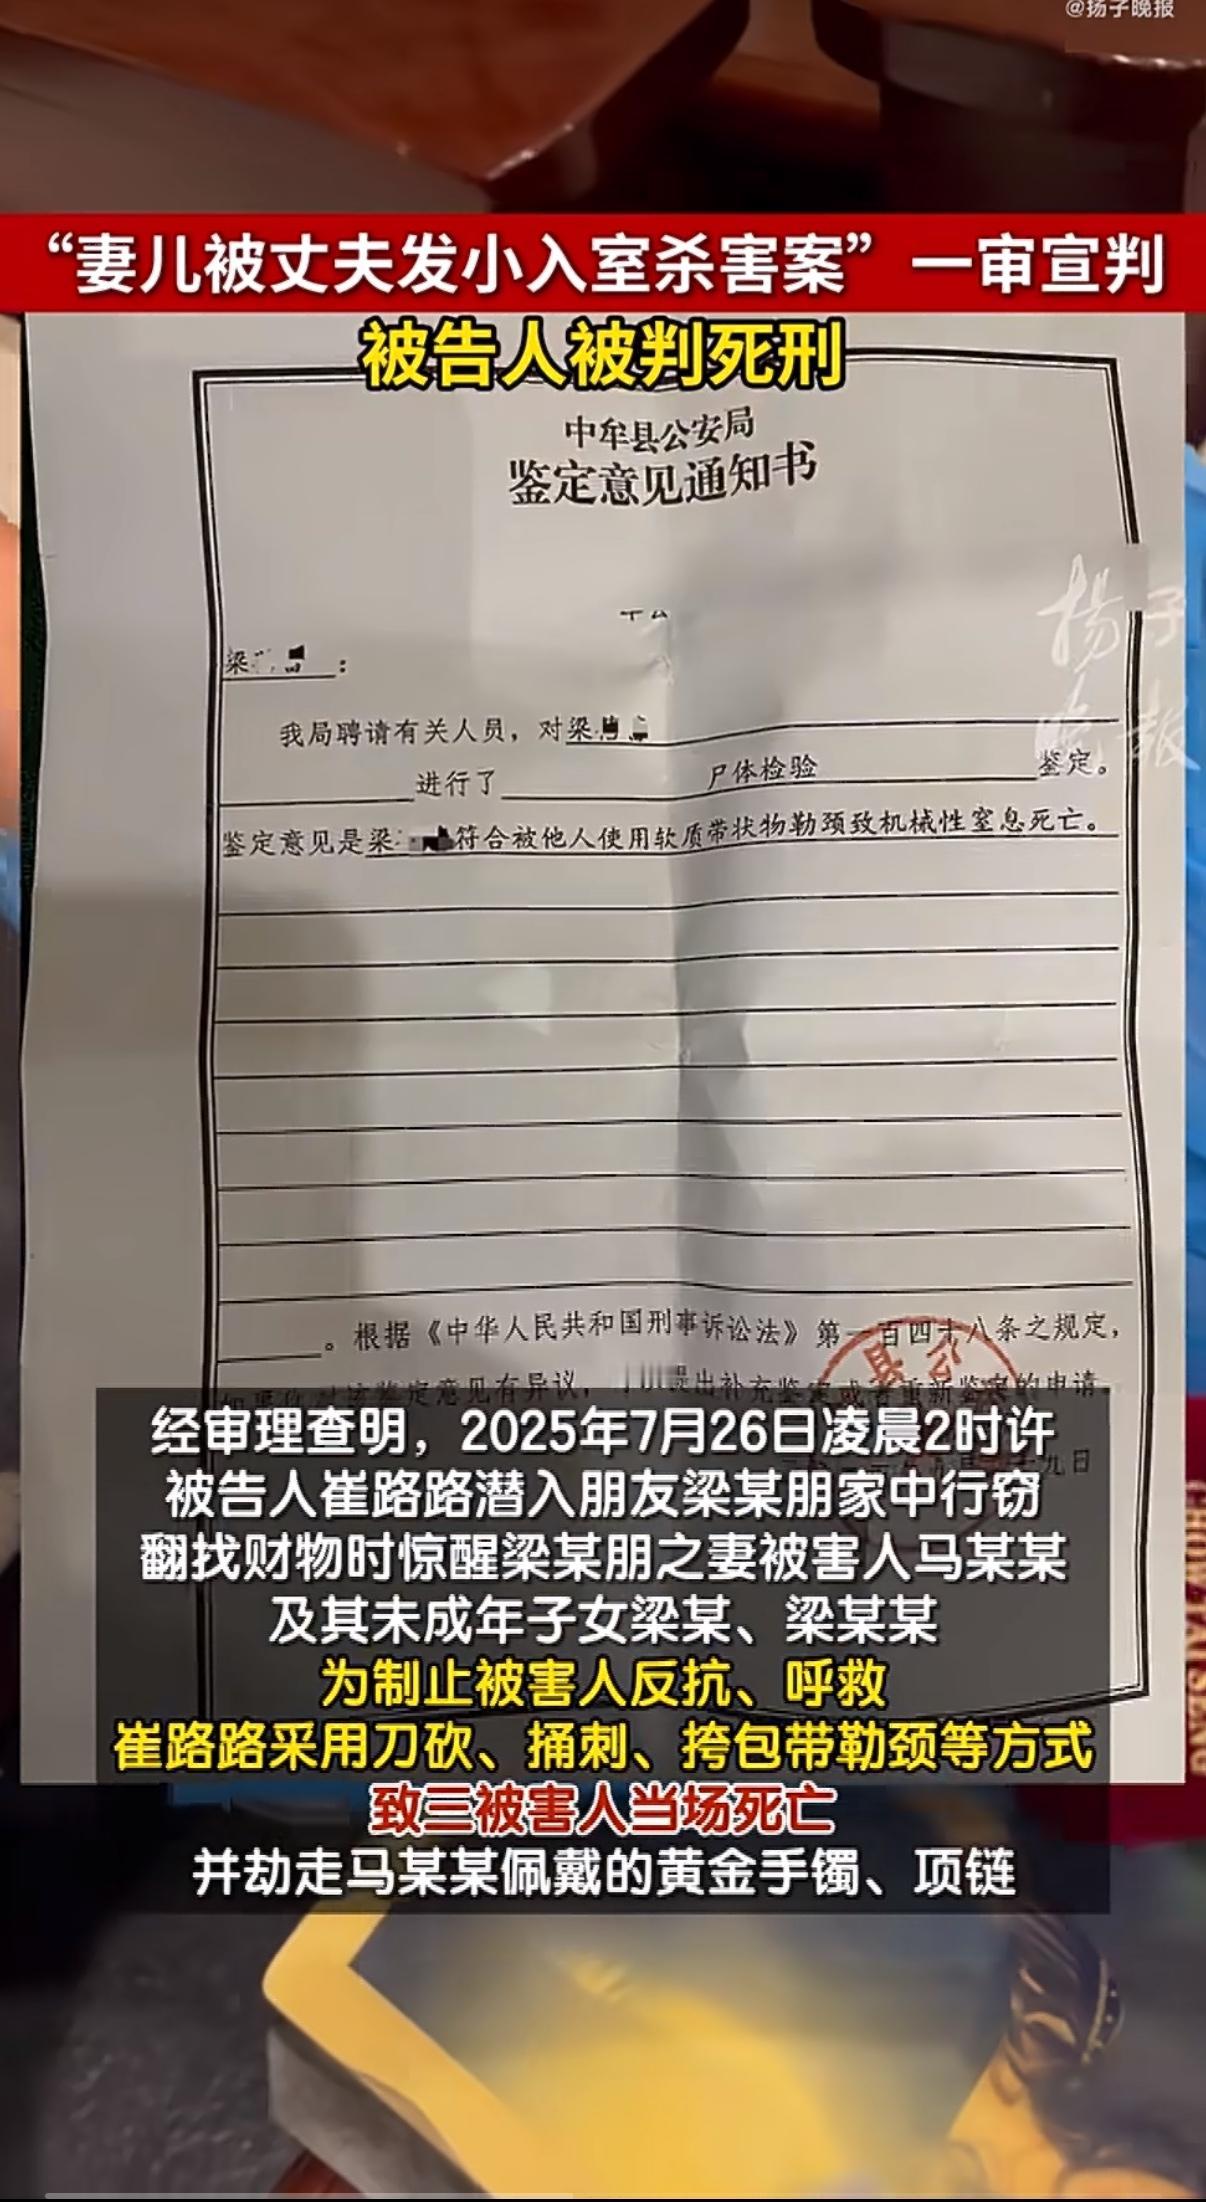 @扬子晚报
“妻儿被丈夫发小入室杀害案”一审宣判
被告人被判死刑
中牟县公安局
鉴定意见通知书
梁
：
我局聘请有关人员，对梁
进行了 尸体检验 鉴定。
鉴定意见是梁 符合被他人使用软质带状物勒颈致机械性窒息死亡。
扬子
晚报
。根据《中华人民共和国刑事诉讼法》第一百四十八条之规定，
鉴定意见有异议， 提出补充鉴定或者重新鉴定的申请。
县公
九日
经审理查明，2025年7月26日凌晨2时许
被告人崔路路潜入朋友梁某朋家中行窃
翻找财物时惊醒梁某朋之妻被害人马某某
及其未成年子女梁某、梁某某
为制止被害人反抗、呼救
崔路路采用刀砍、捅刺、挎包带勒颈等方式
致三被害人当场死亡
并劫走马某某佩戴的黄金手镯、项链
CHOW TAI SENG